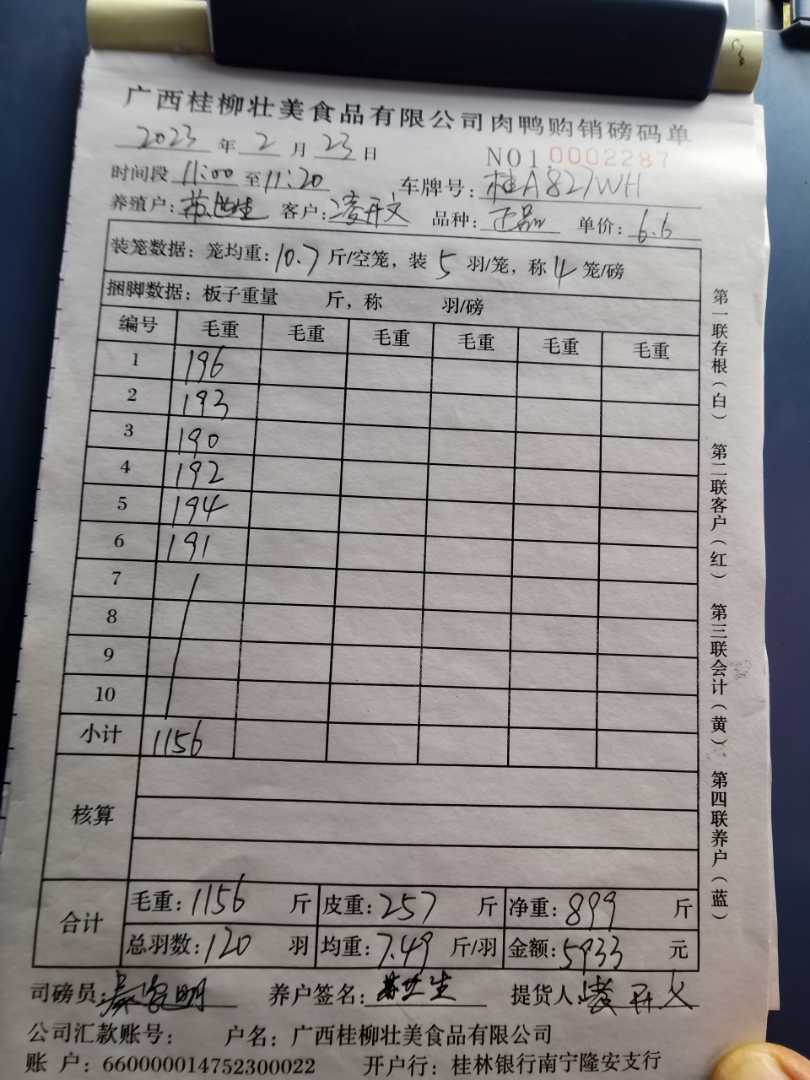 广西桂柳壮美食品有限公司肉鸭购销磅码单
2023 年 2 月 23 日 NO1.0002287
时间段 11:00 至 11:20 车牌号: 桂A827WH
养殖户: 客户: 凌开文 品种: 正品 单价: 6.6
装笼数据: 笼均重: 10.7 斤/空笼, 装 5 羽/笼, 称 4 笼/磅
捆脚数据: 板子重量 斤, 称 羽/磅
编号 毛重 毛重 毛重 毛重 毛重 毛重
1 196
2 193
3 190
4 192
5 194
6 191
7
8
9
10
小计 1156
核算
合计 毛重: 1156 斤 皮重: 257 斤 净重: 899 斤
总羽数: 120 羽 均重: 7.49 斤/羽 金额: 5933 元
司磅员: 养户签名: 提货人: 凌开文
公司汇款账号: 户名: 广西桂柳壮美食品有限公司
账 户: 660000014752300022 开户行: 桂林银行南宁隆安支行
第一联存根(白) 第二联客户(红) 第三联会计(黄) 第四联养户(蓝)